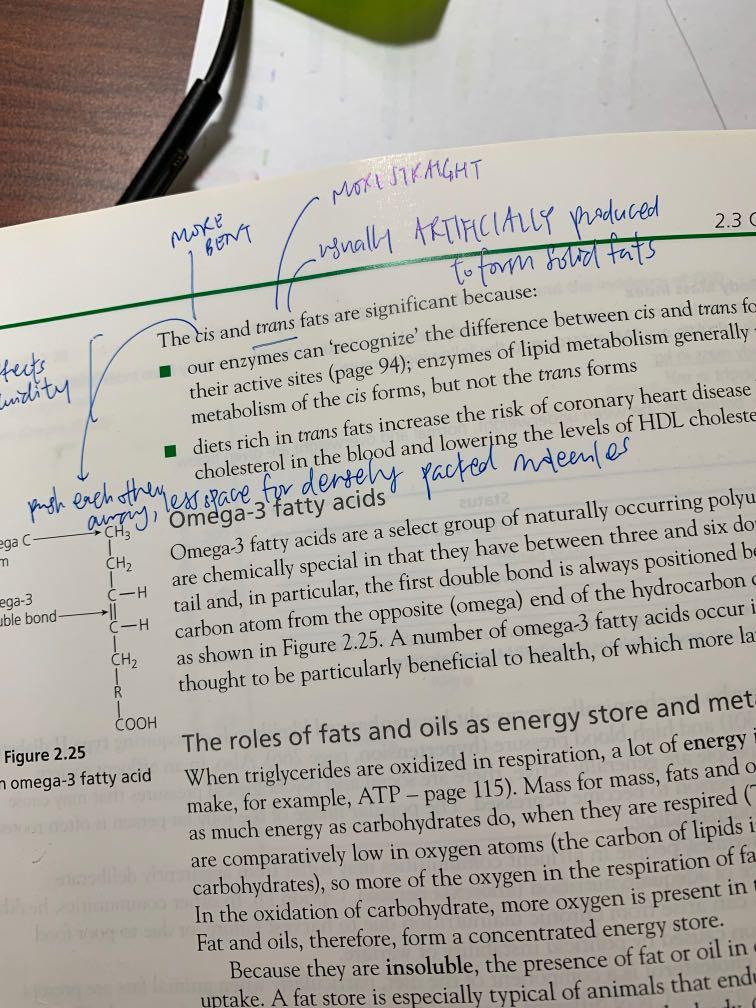 MORE STRAIGHT
MORE
BENT
usually ARTIFICIALLY produced
to form solid fats
2.3
The cis and trans fats are significant because:
our enzymes can 'recognize' the difference between cis and trans fo
their active sites (page 94); enzymes of lipid metabolism generally
metabolism of the cis forms, but not the trans forms
diets rich in trans fats increase the risk of coronary heart disease
cholesterol in the blood and lowering the levels of HDL choleste
push each other
away, less space for densely packed molecules
Omega-3 fatty acids
Omega-3 fatty acids are a select group of naturally occurring polyu
are chemically special in that they have between three and six do
tail and, in particular, the first double bond is always positioned be
carbon atom from the opposite (omega) end of the hydrocarbon
as shown in Figure 2.25. A number of omega-3 fatty acids occur i
thought to be particularly beneficial to health, of which more la
ega C
m
ega-3
uble bond
CH₃
CH₂
C—H
C—H
CH₂
R
COOH
Figure 2.25
n omega-3 fatty acid
The roles of fats and oils as energy store and met
When triglycerides are oxidized in respiration, a lot of energy i
make, for example, ATP – page 115). Mass for mass, fats and o
as much energy as carbohydrates do, when they are respired (
are comparatively low in oxygen atoms (the carbon of lipids i
carbohydrates), so more of the oxygen in the respiration of fa
In the oxidation of carbohydrate, more oxygen is present in
Fat and oils, therefore, form a concentrated energy store.
Because they are insoluble, the presence of fat or oil in
uptake. A fat store is especially typical of animals that end